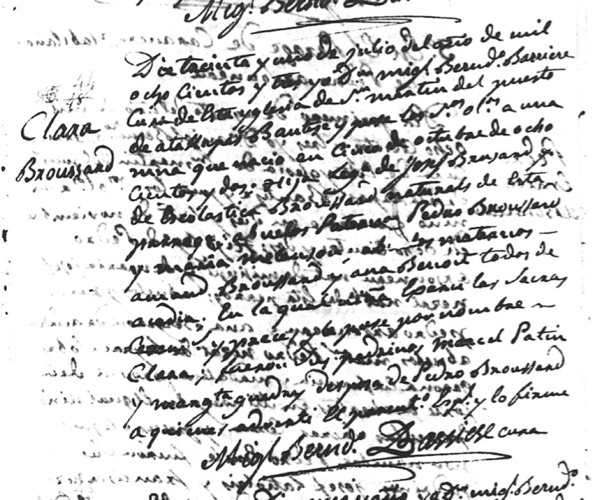 Migl. Bernd. Barriere
Clara
Broussard
Dia tacinta y uno de julio del año de mil
ocho Cientos y tres yo Dn. migl. Bernd. Barriere
Cura de Esta yglecia de Sn. martin del puesto
de atakapas Bautize y puse los Stos. olos. a una
nina que nacio en Cinco de octubre de ocho
Cientos y dos: hija Lega. de Josef Brusard y
de Escolastica Broussard naturals de Esta
parroqa. abuelos Paternos Pedro Broussard
y maria melanson mat
amand Broussard y ana Benoit todos de
acadia; En la qual las Sacras
Cerem. y preces, y la puse por nombre
Clara, fueron Sus padrinos marcel Patin
y margta. guedry desposa de Pedro Broussard
a quienes adverti El parentco. Espl. y lo firme
Migl. Bernd. Barriere cura
migl. Bernd.